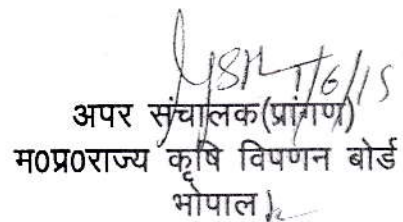 1/6/15
अपर संचालक(प्रांगण)
म0प्र0राज्य कृषि विपणन बोर्ड
भोपाल